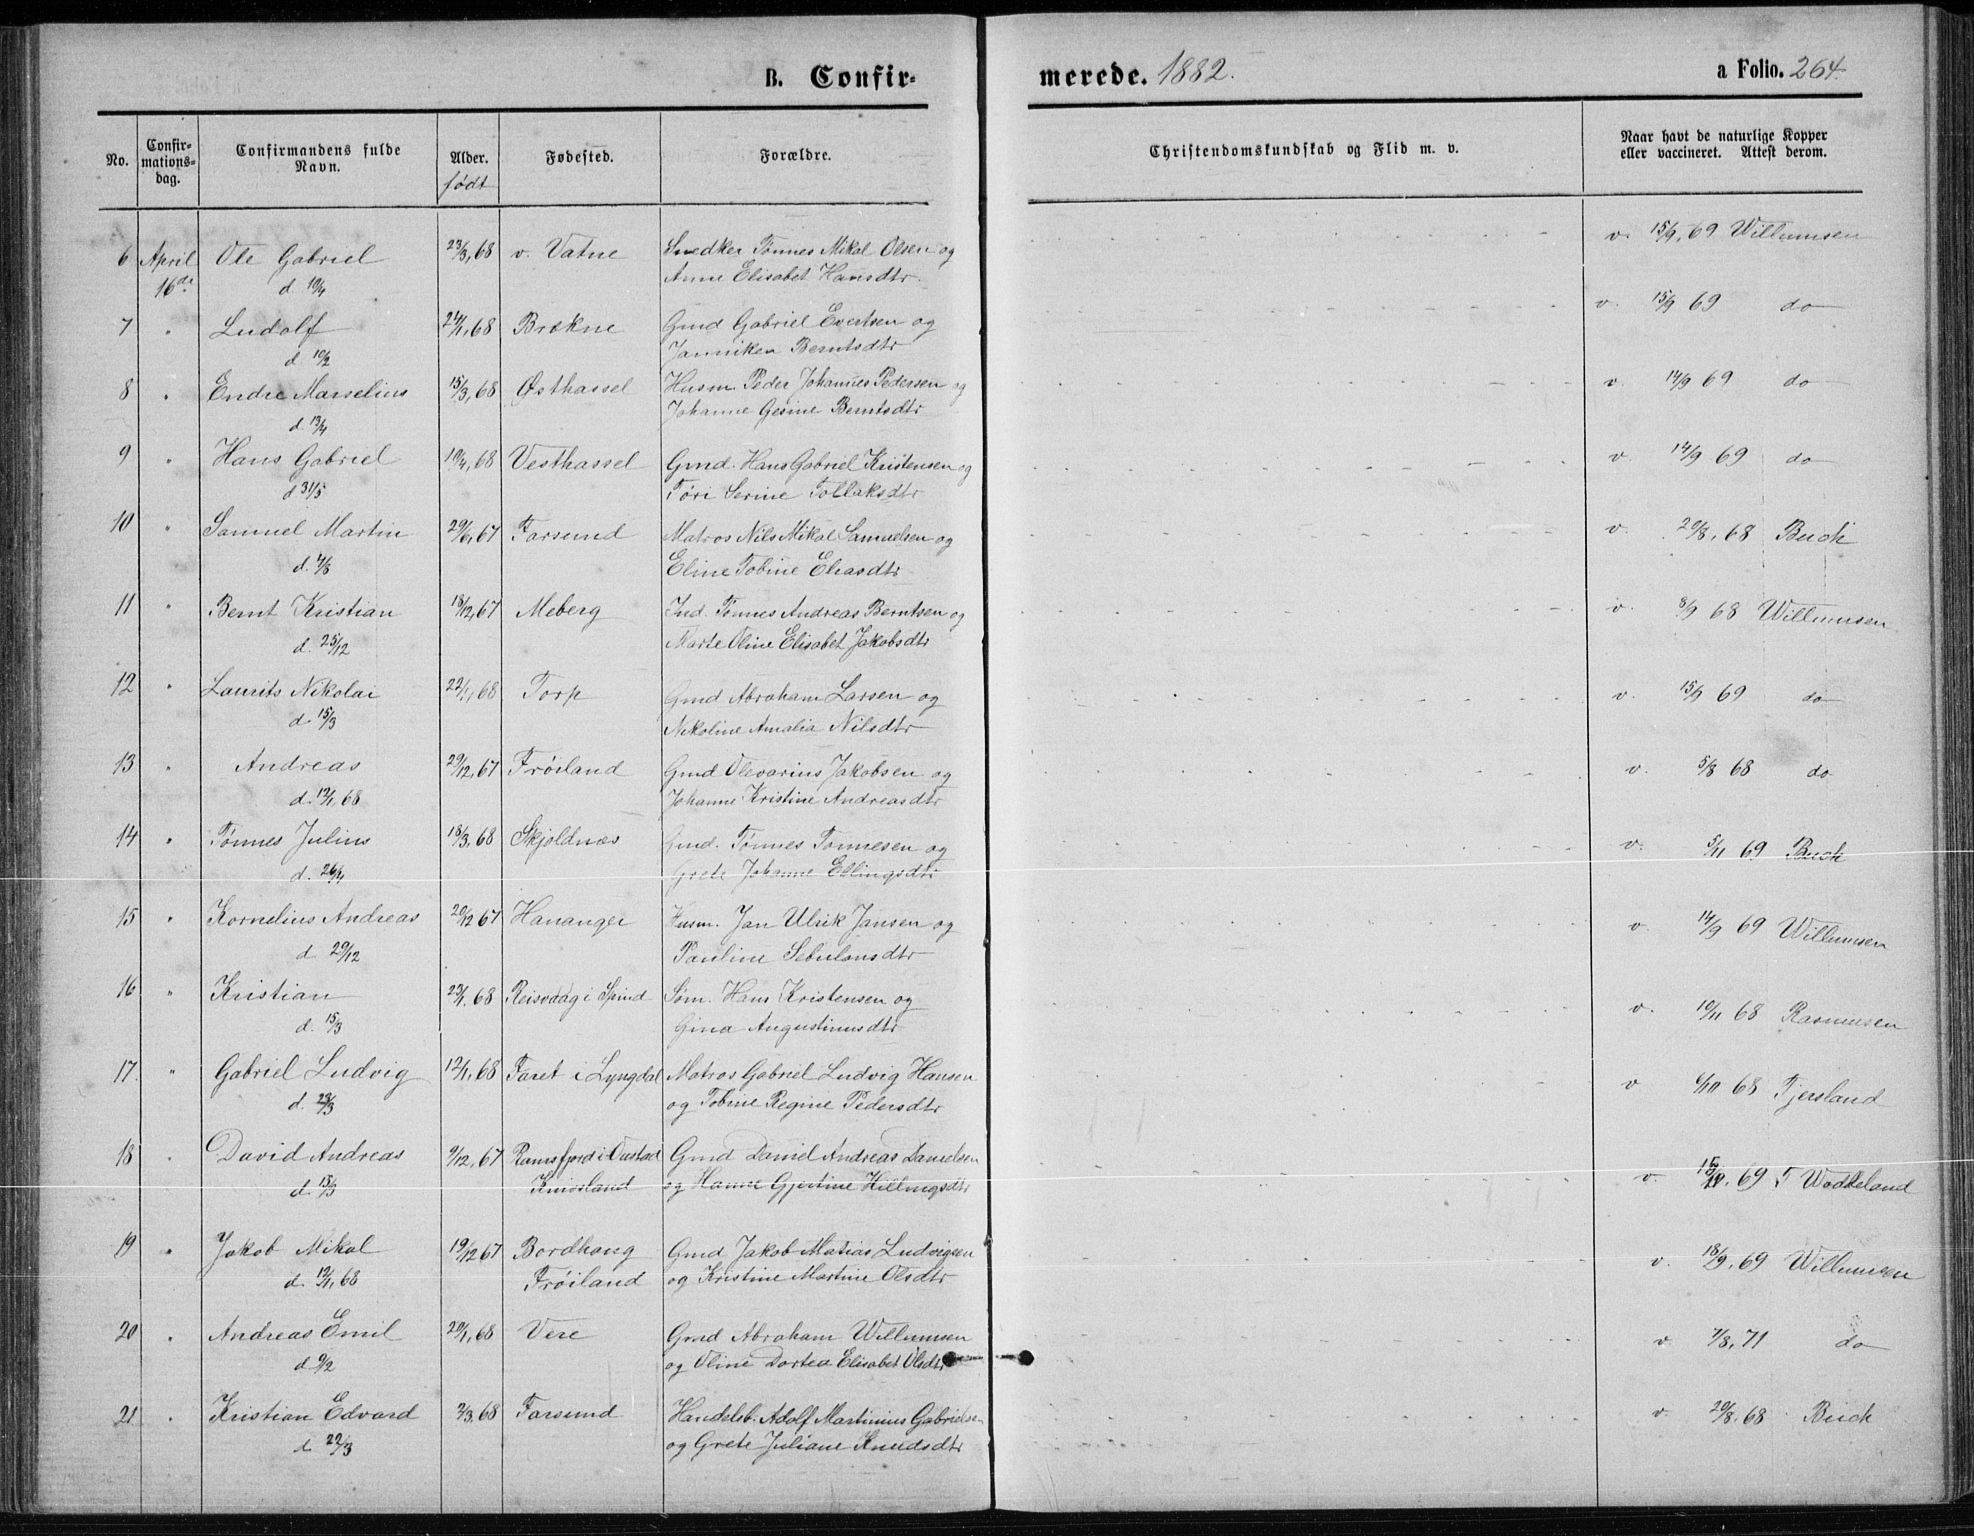 B. Confirmerede. 1882.
a Folio. 264.
No.
Confirmationsdag.
Confirmandens fulde Navn.
Alder.
født
Fødested.
Forældre.
Christendomskundskab og Flid m. v.
Naar havt de naturlige Kopper
eller vaccineret. Attest derom.
6 April Ole Gabriel 23/3, 68 v. Vatne Snedker Tønnes Mikal Olsen og v. 15/9, 69 Willumsen
16de d. 19/4 Anne Elisabet Hansdtr.
7 " Ludolf 24/1, 68 Brekne Gmd Gabriel Evertsen og v. 15/9 69 do
d. 10/2 Janniken Berntsdtr
8 " Endre Marselius 15/3, 68 Østhassel Husm. Peder Johannes Pedersen og v. 14/9 69 do
d. 13/4 Johanne Gesine Berntsdtr
9 " Hans Gabriel 19/4, 68 Vesthassel Gmd. Hans Gabriel Kristensen og v. 14/9 69 do
d 31/5 Tøri Serine Tollaksdtr
10 " Samuel Martin 29/6, 67 Farsund Matros Nils Mikal Samuelsen og v. 20/8, 68 Buch
d. 4/8 Eline Tobine Eliasdtr
11 " Bernt Kristian 18/12, 67 Meberg Ind. Tønnes Andreas Berntsen og v. 8/9 68 Willumsen
d. 25/12 Marte Oline Elisabet Jakobsdtr
12 " Laurits Nikolai 22/1, 68 Torp Gmd Abraham Larsen og v. 15/9 69 do
d. 15/3 Nikoline Amalia Nilsdtr
13 " Andreas 29/12, 67 Frøiland Gmd Olevarius Jakobsen og v. 5/8 68 do
d. 12/1, 68 Johanne Kristine Andreasdtr
14 " Tønnes Julius 18/3, 68 Skjoldnæs Gmd. Tønnes Tønnesen og v. 5/11 69 Buch
d. 26/4 Grete Johanne Ellingsdtr
15 " Kornelius Andreas 20/12 67 Hananger Husm. Jan Ulrik Jansen og v. 14/9 69 Willumsen
d. 29/12 Pauline Sebulonsdtr
16 " Kristian 23/1, 68 Reisvaag i Spind Søm. Hans Kristensen og v. 10/11 68 Rasmussen
d. 15/3 Gina Augustinusdtr
17. " Gabriel Ludvig 12/1, 68 Faret i Lyngdal Matros Gabriel Ludvig Hansen v 6/10 68 Fjersland
d. 23/3 og Tobine Regine Pedersdtr
18 " David Andreas 9/12, 67 Gmd Daniel Andreas Danielsen v. 69 Waddeland
d. 13/3 og Hanne Gjertine
19 " Jakob Mikal 19/12 67 Bordhaug Gmd Jakob Matias Ludvigsen v. 18/9, 69 Willumsen
d. 12/1, 68 Frøiland og Kristine Martine Olsdtr
20 " Andreas Emil 20/1, 68 Vere Gmd Abraham Willumsen v 7/8, 71 do
d 9/2 og Oline Dortea Elisabet Olsdtr
21 " Kristian Edvard 2/3, 68 Farsund Handelsb. Adolf Martinius Gabrielsen v. 20/8, 68 Buch
d 22/3 og Grete Juliane Knudsdtr